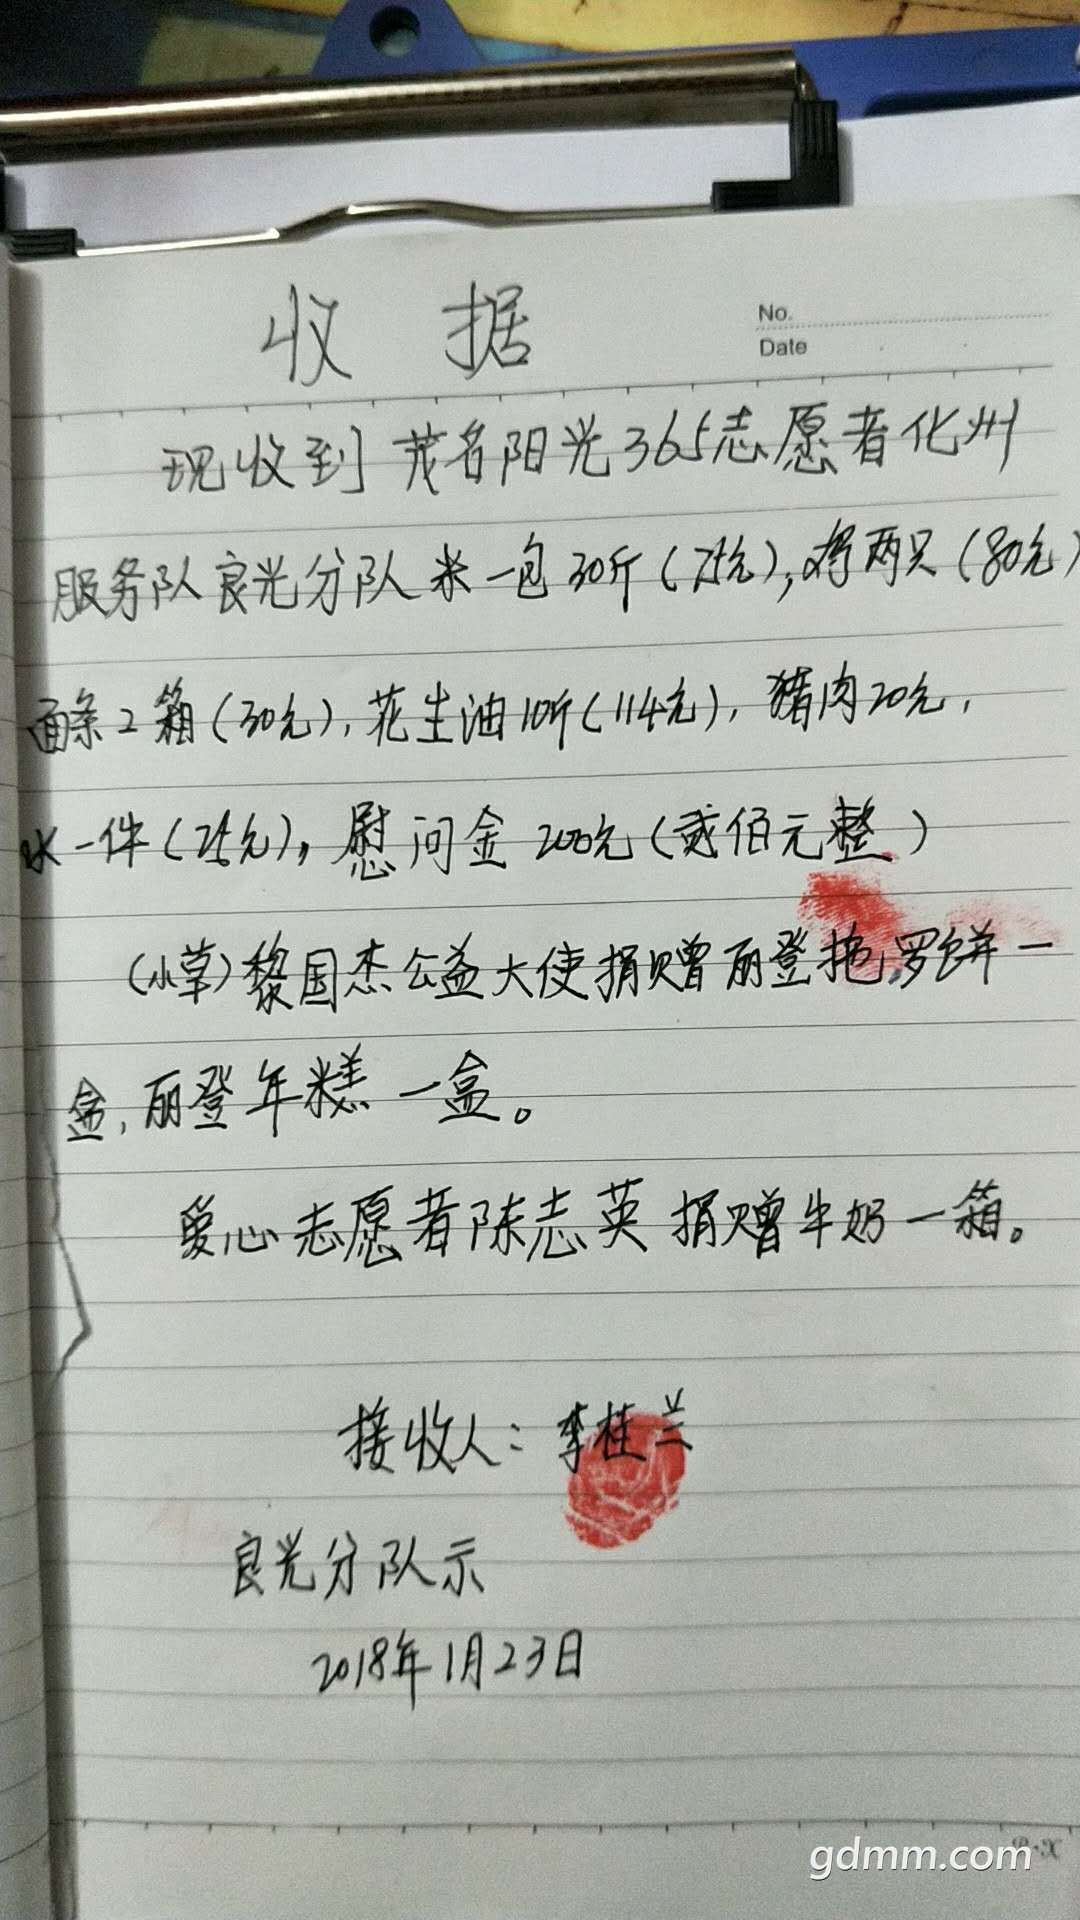 收 据
No.
Date
现收到茂名阳光365志愿者化州
服务队良光分队米一包30斤(75元),两只(80元)
面条2箱(30元),花生油10斤(114元),猪肉20元,
水一件(25元),慰问金200元(贰佰元整)
(小草)黎国杰公益大使捐赠丽登拖罗饼一
盒,丽登年糕一盒。
爱心志愿者陈志英捐赠牛奶一箱。
接收人:李桂兰
良光分队示
2018年1月23日
gdmm.com